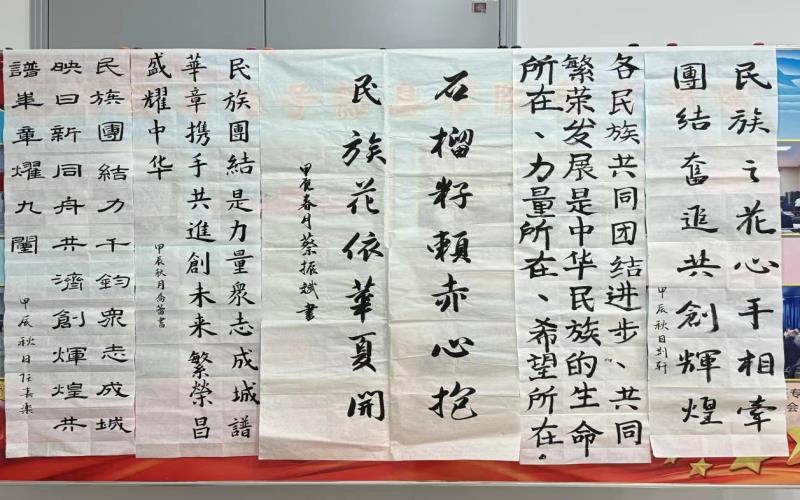 民族之花心手相牽
團結奮追共創輝煌
甲辰秋日刘轩
各民族共同团结进步、共同
繁荣发展是中华民族的生命
所在、力量所在、希望所在.
石榴籽賴赤心抱
民族花依華夏開
甲辰春月蔡振斌書
民族團結是力量衆志成城譜
華章携手共進創未来繁榮昌
盛耀中华
甲辰秋月書
民族團結力千鈞衆志成城
映日新同舟共濟創輝煌共
譜華章燿九
甲辰秋日任
专
会